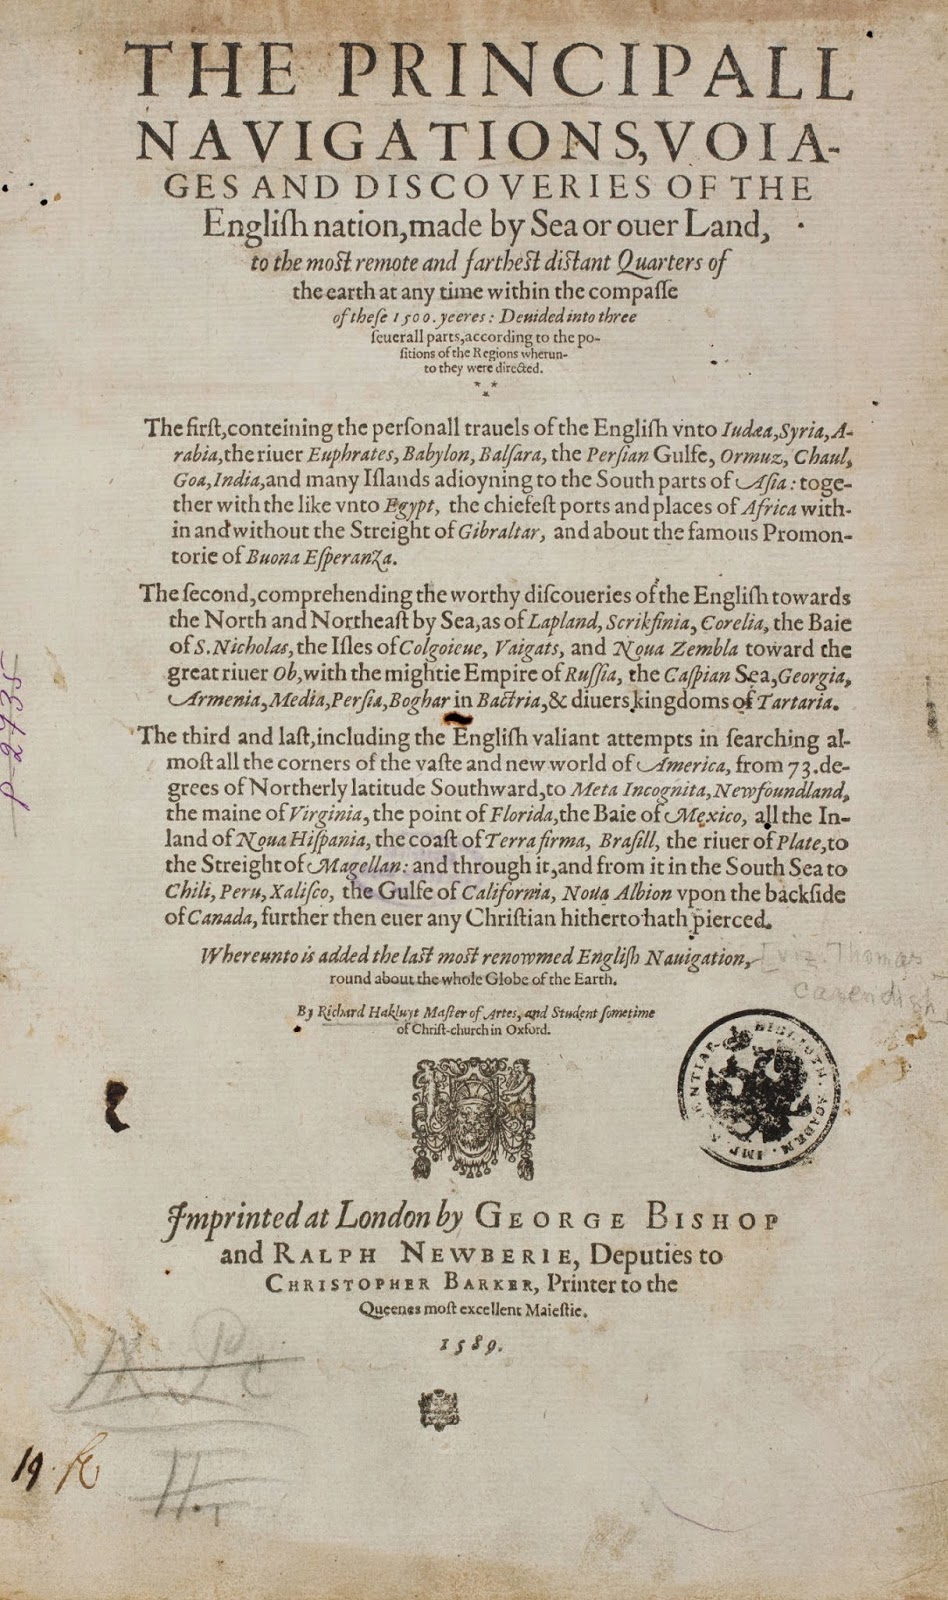 THE PRINCIPALL
NAVIGATIONS, VOIA-
GES AND DISCOVERIES OF THE
Engliſh nation, made by Sea or ouer Land,
to the moſt remote and fartheſt diſtant Quarters of
the earth at any time within the compaſſe
of theſe 1500. yeeres: Deuided into three
ſeuerall parts, according to the po-
ſitions of the Regions wherun-
to they were directed.
The firſt, conteining the perſonall trauels of the Engliſh vnto Iudæa, Syria, A-
rabia, the riuer Euphrates, Babylon, Balſara, the Perſian Gulfe, Ormuz, Chaul,
Goa, India, and many Iſlands adioyning to the South parts of Aſia: toge-
ther with the like vnto Egypt, the chiefeſt ports and places of Africa with-
in and without the Streight of Gibraltar, and about the famous Promon-
torie of Buona Eſperanza.
The ſecond, comprehending the worthy diſcoueries of the Engliſh towards
the North and Northeaſt by Sea, as of Lapland, Scrikfinia, Corelia, the Baie
of S. Nicholas, the Iſles of Colgoieue, Vaigats, and Noua Zembla toward the
great riuer Ob, with the mightie Empire of Ruſſia, the Caſpian Sea, Georgia,
Armenia, Media, Perſia, Boghar in Bactria, & diuers kingdoms of Tartaria.
The third and laſt, including the Engliſh valiant attempts in ſearching al-
moſt all the corners of the vaſte and new world of America, from 73. de-
grees of Northerly latitude Southward, to Meta Incognita, Newfoundland,
the maine of Virginia, the point of Florida, the Baie of Mexico, all the In-
land of Noua Hiſpania, the coaſt of Terra firma, Braſill, the riuer of Plate, to
the Streight of Magellan: and through it, and from it in the South Sea to
Chili, Peru, Xaliſco, the Gulfe of California, Noua Albion vpon the backſide
of Canada, further then euer any Chriſtian hitherto hath pierced.
Whereunto is added the laſt moſt renowmed Engliſh Nauigation,
round about the whole Globe of the Earth.
[viz. Thomas
Cavendish]
By Richard Hakluyt Maſter of Artes, and Student ſometime
of Chriſt-church in Oxford.
Imprinted at London by GEORGE BISHOP
and RALPH NEWBERIE, Deputies to
CHRISTOPHER BARKER, Printer to the
Queenes moſt excellent Maieſtie.
1589.
19
P-2935
BIBLIOTH. ACADEM. IMP.